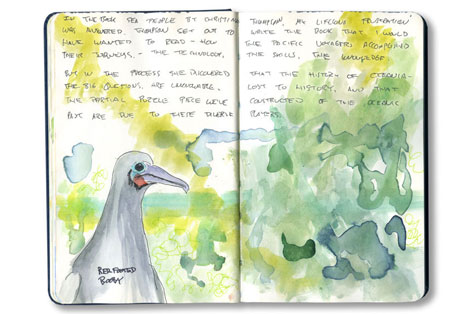 IN THE BOOK SEA PEOPLE BY CHRISTINA THOMPSON, MY LIFELONG FRUSTRATION
WAS ANSWERED. THOMPSON SET OUT TO WRITE THE BOOK THAT I WOULD
HAVE WANTED TO READ - HOW THE PACIFIC VOYAGERS
THEIR JOURNEYS. - THE TECHNOLOGY, THE SKILLS, THE KNOWLEDGE.
BUT IN THE PROCESS SHE DISCOVERED THAT THE HISTORY OF OCEANIA -
THE BIG QUESTIONS, ARE UNKNOWABLE, LOST TO HISTORY, AND THAT
THE PARTIAL PUZZLE PIECE WE'VE CONSTRUCTED OF THIS OCEANIC
PAST ARE DUE TO THESE DIVERSE PLAYERS.
RED FOOTED
BOOBY